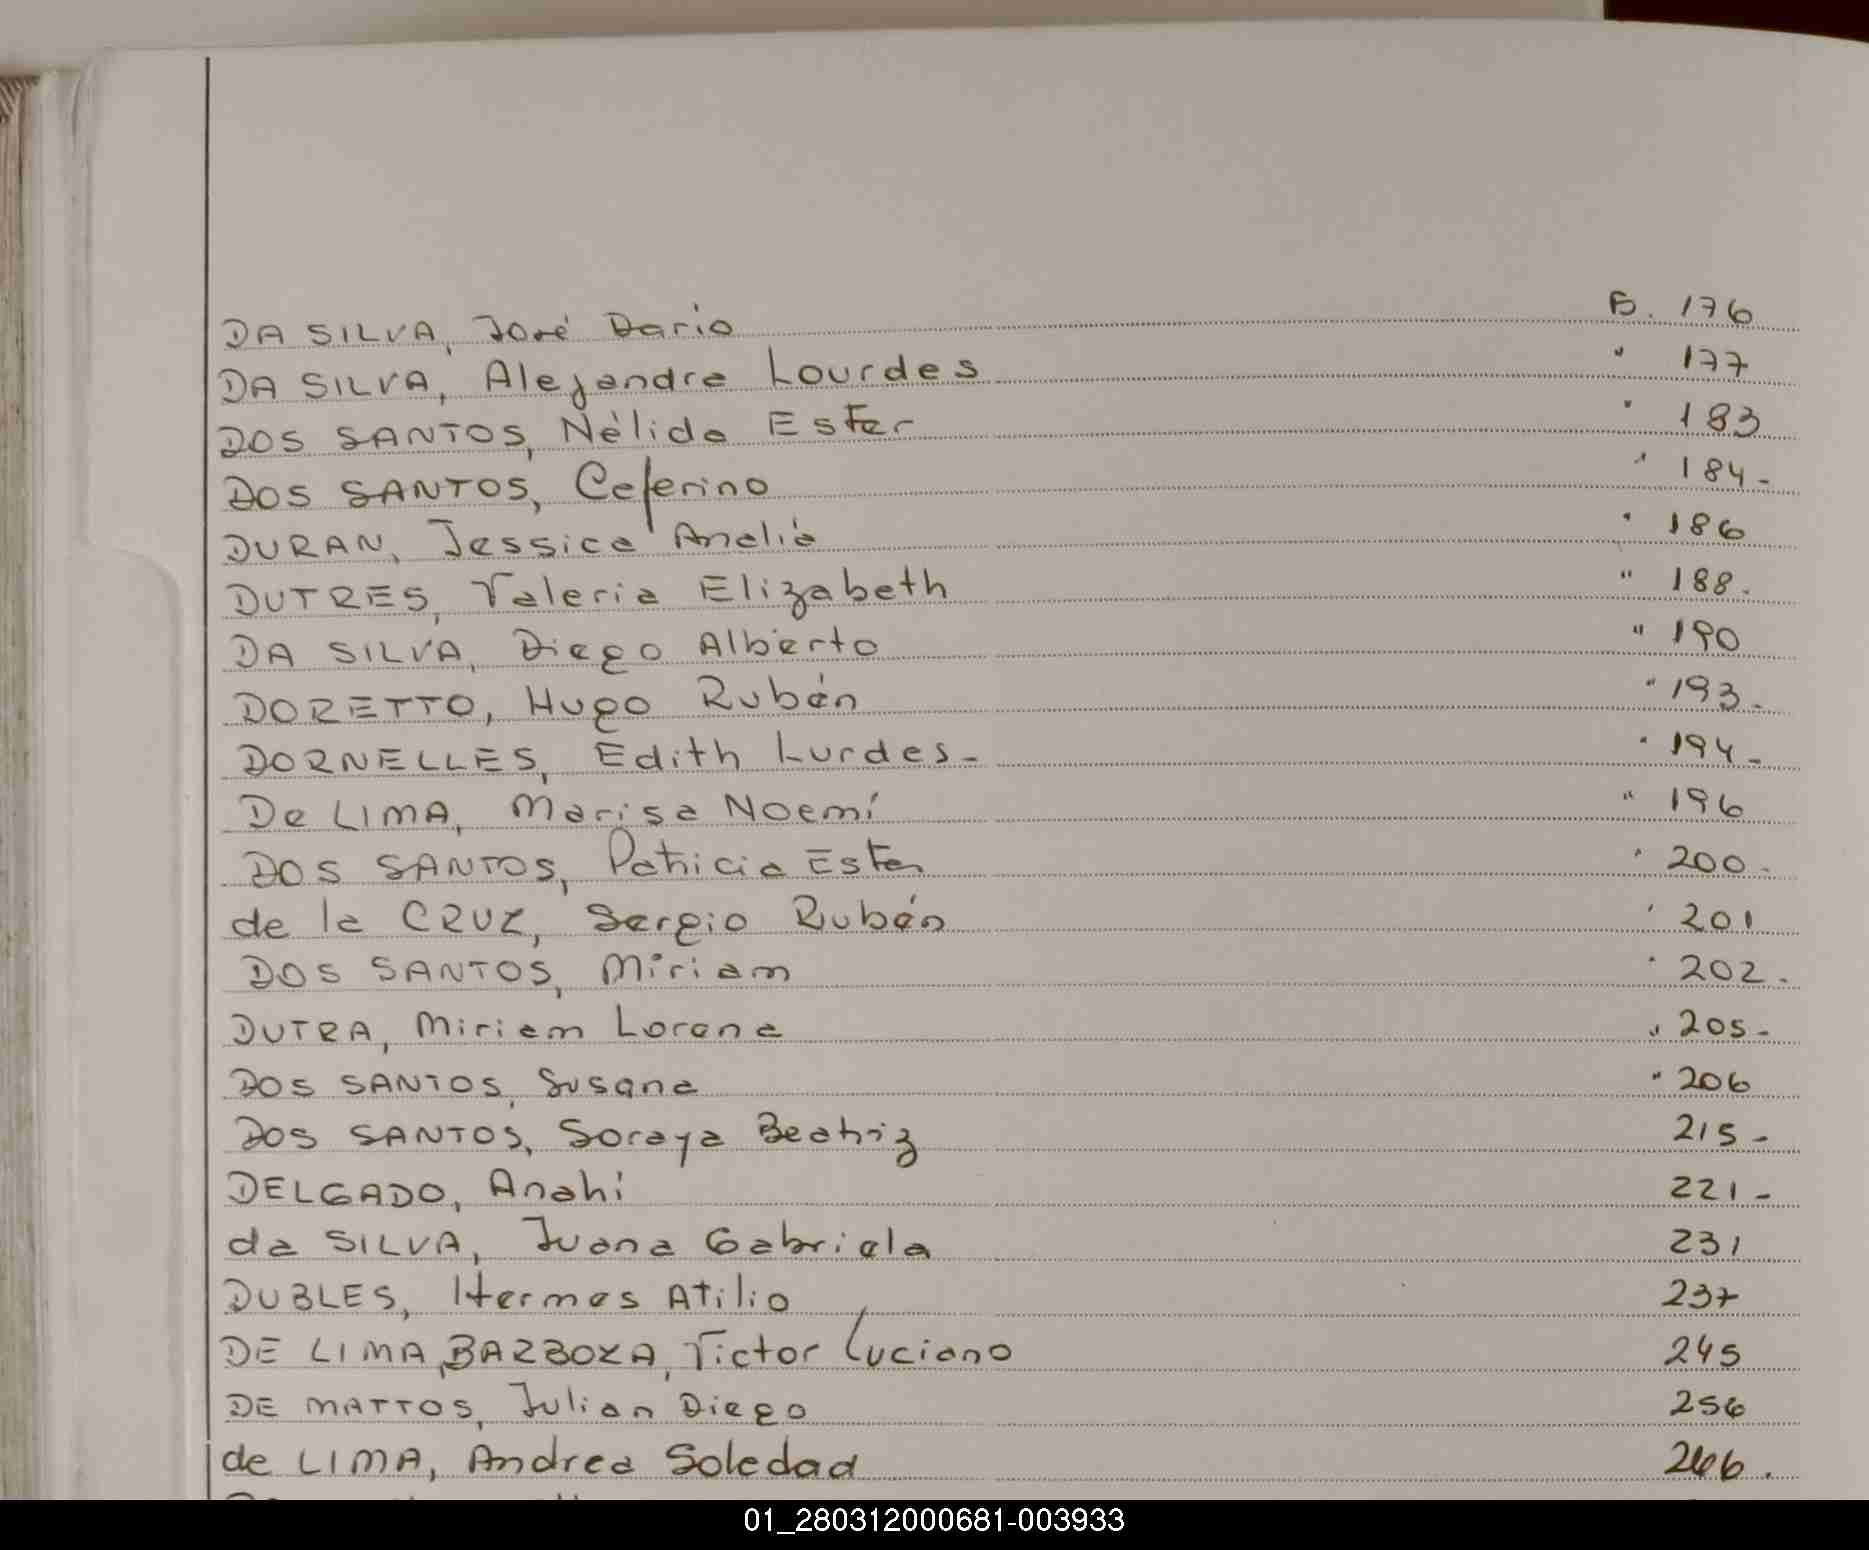 DA SILVA, José Dario F. 176
DA SILVA, Alejandra Lourdes " 177
DOS SANTOS, Nélida Ester " 183
DOS SANTOS, Ceferino " 184-
DURAN, Jessica Analía " 186
DUTRES, Valeria Elizabeth " 188-
DA SILVA, Diego Alberto " 190
DORETTO, Hugo Rubén " 193-
DORNELLES, Edith Lurdes- " 194-
De LIMA, Marisa Noemí " 196
DOS SANTOS, Patricia Ester " 200-
de la CRUZ, Sergio Rubén " 201
DOS SANTOS, Miriam " 202-
DUTRA, Miriam Lorena " 205-
DOS SANTOS, Susana " 206
DOS SANTOS, Soraya Beatriz 215-
DELGADO, Anahi 221-
da SILVA, Juana Gabriela 231
DUBLES, Hermes Atilio 237
DE LIMA BARBOZA, Victor Luciano 245
DE MATTOS, Julian Diego 256
de LIMA, Andrea Soledad 266.
01_280312000681-003933